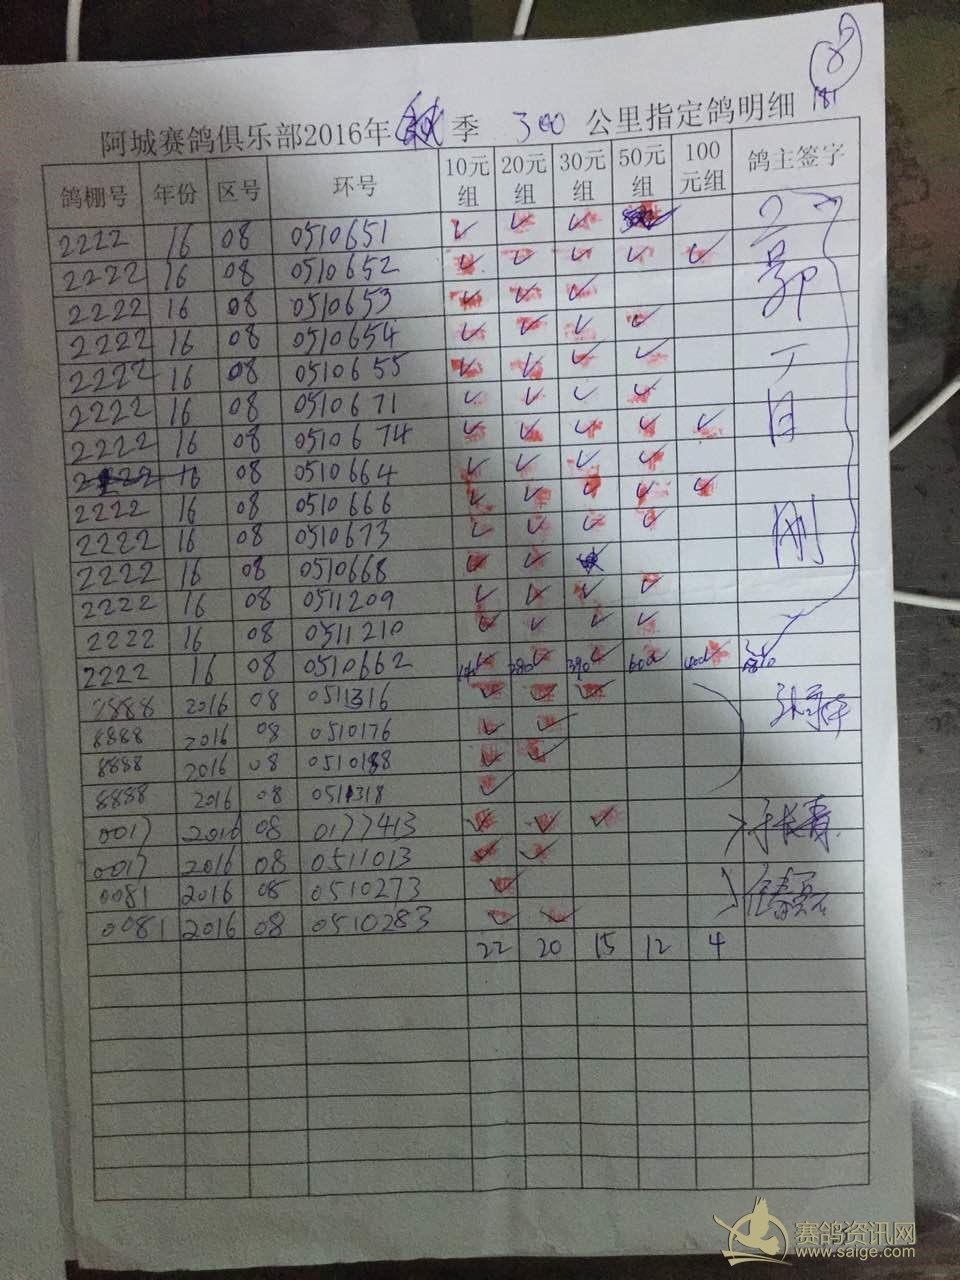 8
181
阿城赛鸽俱乐部2016年秋季 300 公里指定鸽明细
鸽棚号 年份 区号 环号 10元组 20元组 30元组 50元组 100元组 鸽主签字
2222 16 08 0510651 ✓ ✓ ✓
2222 16 08 0510652 ✓ ✓ ✓ ✓ ✓
2222 16 08 0510653 ✓ ✓ ✓
2222 16 08 0510654 ✓ ✓ ✓ ✓
2222 16 08 0510655 ✓ ✓ ✓ ✓
2222 16 08 0510671 ✓ ✓ ✓ ✓
2222 16 08 0510674 ✓ ✓ ✓ ✓ ✓
2222 16 08 0510664 ✓ ✓ ✓ ✓
2222 16 08 0510666 ✓ ✓ ✓ ✓ ✓
2222 16 08 0510673 ✓ ✓ ✓ ✓
2222 16 08 0510668 ✓ ✓
2222 16 08 0511209 ✓ ✓ ✓ ✓
2222 16 08 0511210 ✓ ✓ ✓ ✓
2222 16 08 0510662 140 280 390 600 400
8888 2016 08 0511316 ✓ ✓ ✓
8888 2016 08 0510176 ✓ ✓
8888 2016 08 0510188 ✓ ✓
8888 2016 08 0511318 ✓
0017 2016 08 0177413 ✓ ✓ ✓
0017 2016 08 0511013 ✓ ✓
0081 2016 08 0510273 ✓
0081 2016 08 0510283 ✓ ✓
22 20 15 12 4
赛鸽资讯网
www.saige.com